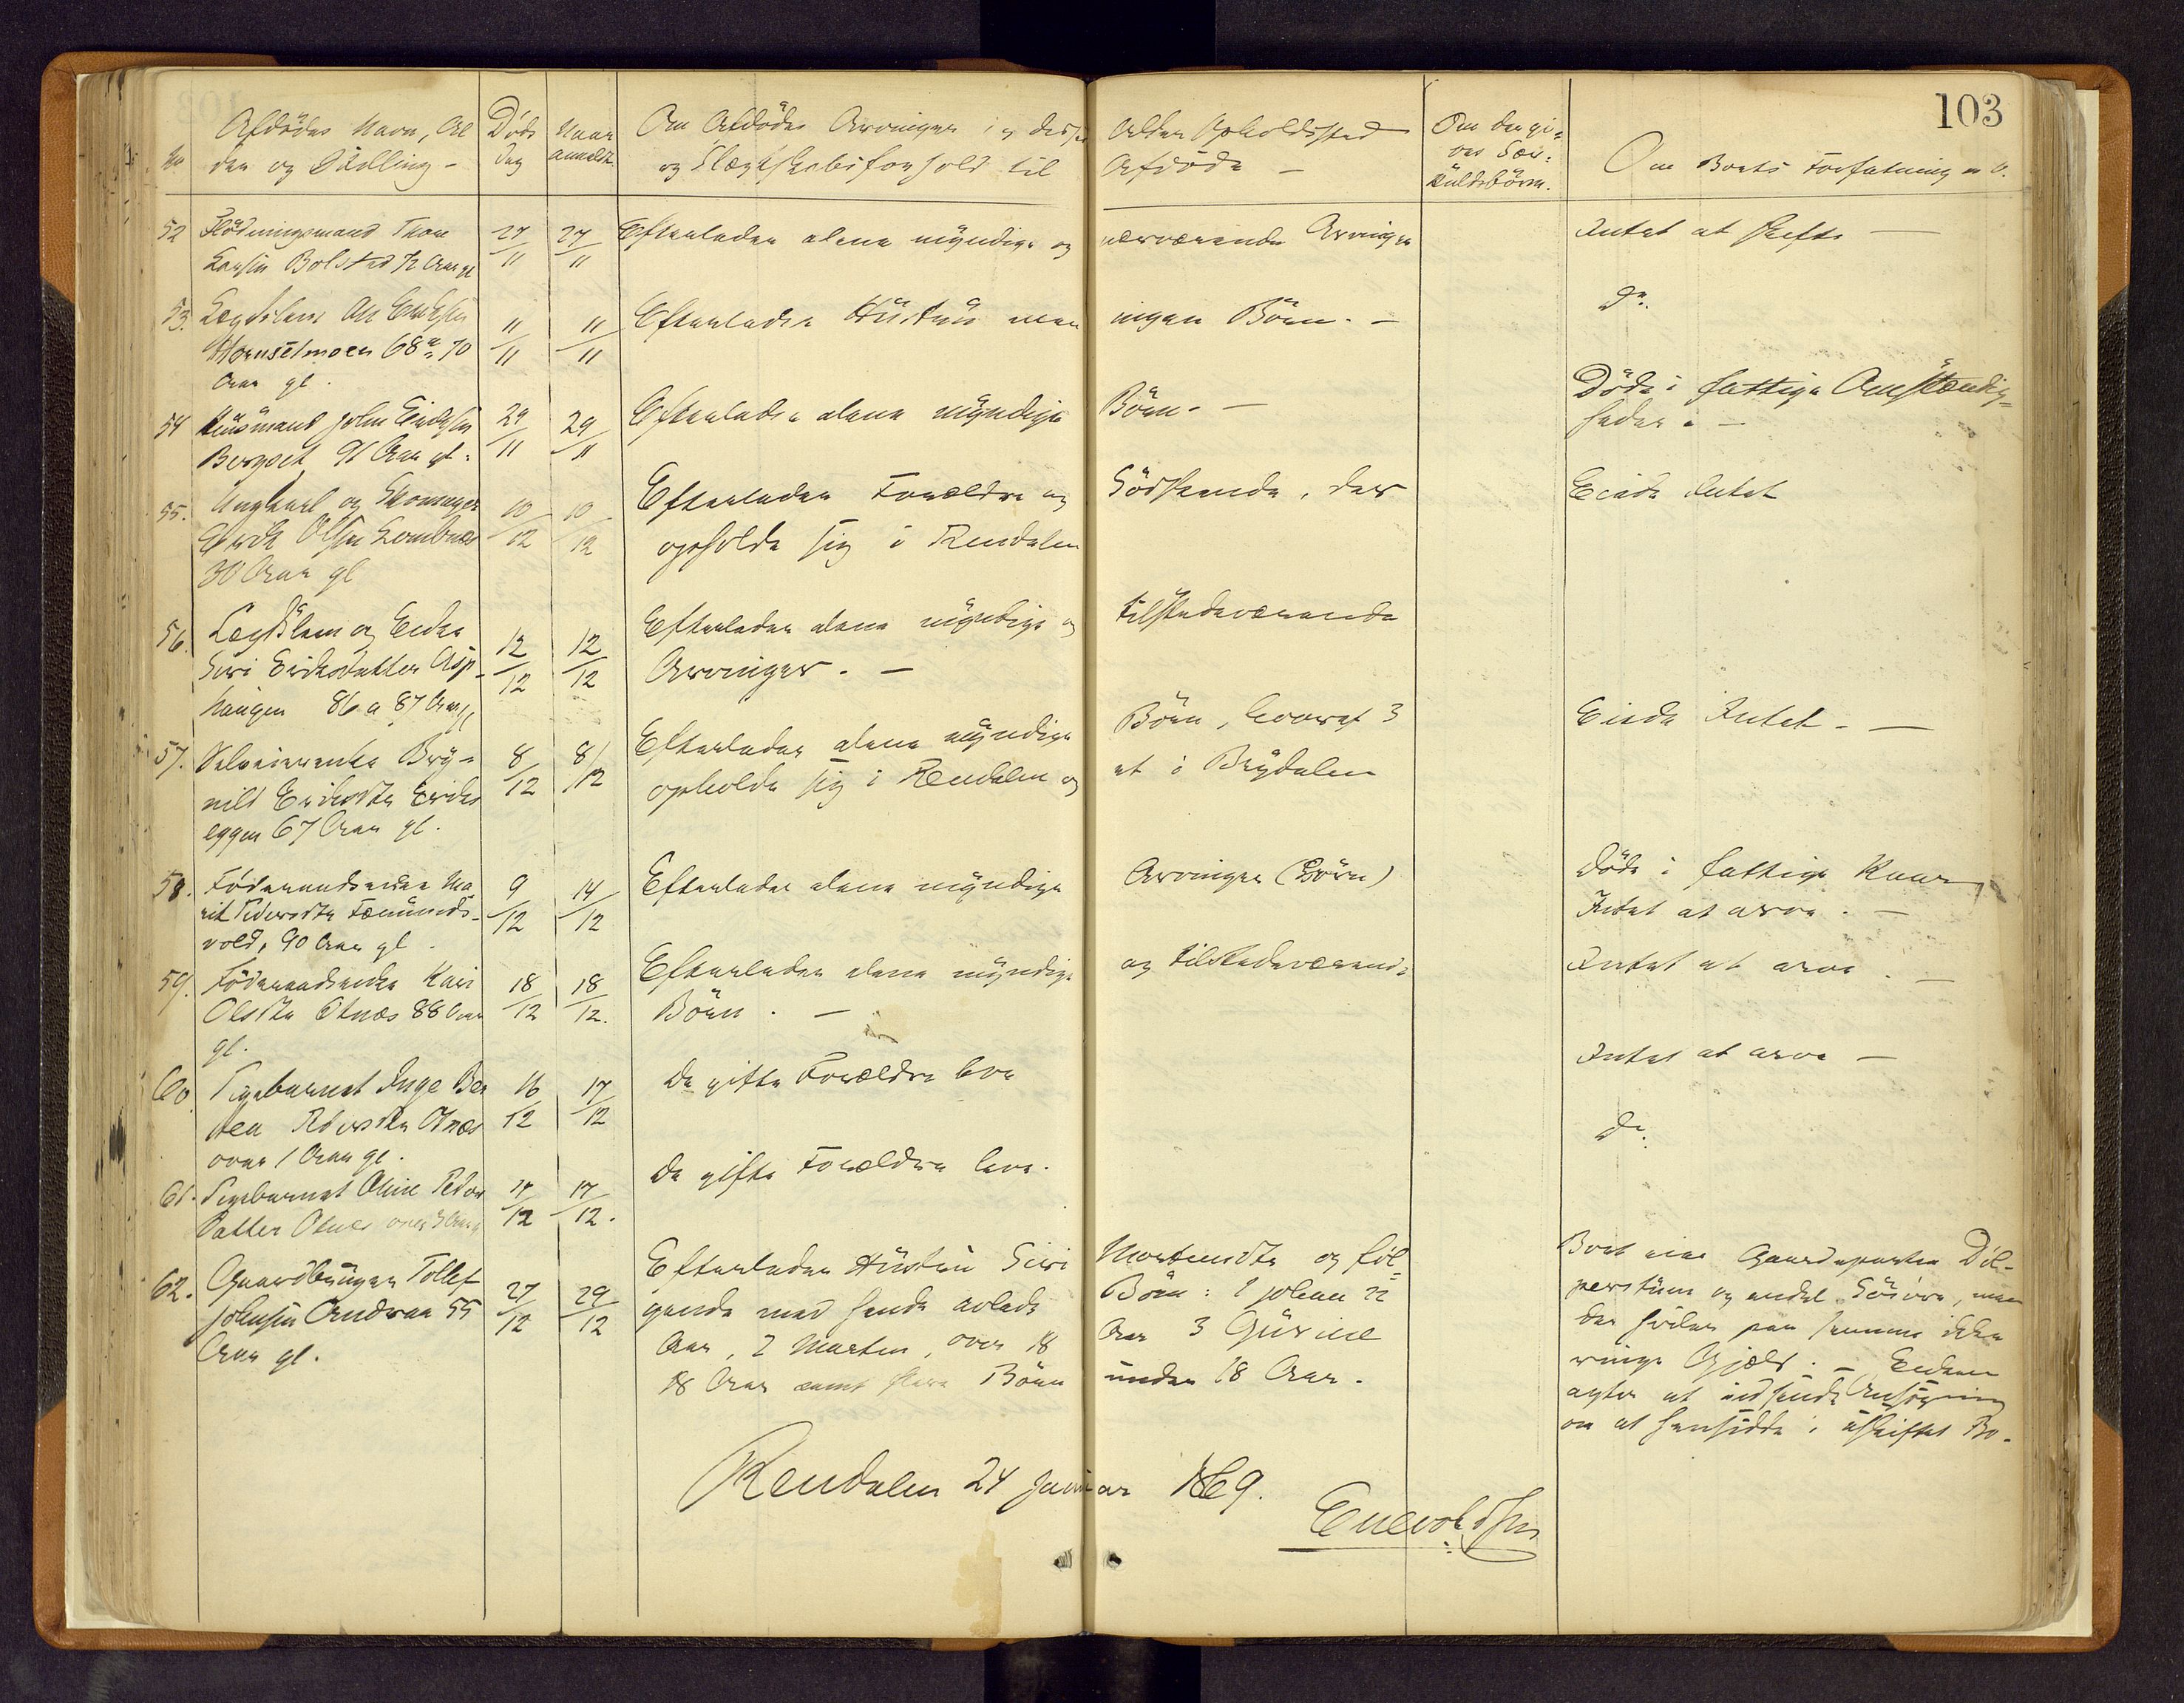 103
No
Afdødes Navn, Al
der og Stilling -
Døds
Dag
Naar
anmeldt
Om Afdødes Arvinger, disses Alder Opholdssted
og Slægtskabsforhold til Afdøde -
Om der gi-
ves Sær-
kuldsbörn.
Om Boets Forfatning m. v.
52 Födningsmand Thore
Larsen Bolstad 72 Aar gl
27/11 27/11
Efterlader alene myndige og nærværende Arvinger
Intet at skifte -
53. Lægdslem Ole Eriksen
Hornsetmoen 68 a 70
Aar gl.
11/11 11/11
Efterlader Hustru men ingen Börn. -
Do.
54 Husmand John Eriksen
Berget 91 Aar gl.
29/11 29/11
Efterlader alene myndige Börn. -
Döde i fattige Omstændig-
heder. -
55. Ungkarl og Skomager
Erik Olsen Lombnæs
30 Aar gl
10/12 10/12
Efterlader Forældre og Södskende, der
opholde sig i Rendalen
Eiede Intet
56. Lægdslem og Enke
Siri Eriksdatter Asp-
haugen 86 a 87 Aar gl
12/12 12/12
Efterlader alene myndige og tilstedeværende
Arvinger. -
57. Selveierenke Bry-
nild Eriksdtr Eriks
eggen 67 Aar gl.
8/12 8/12
Efterlader alene myndige Börn, hvoraf 3
opholde sig i Rendalen og et i Brydalen
Eiede Intet. -
58. Föderaadsenke Ma
rit Pedersdtr Fæmunds-
vold, 90 Aar gl.
9/12 14/12
Efterlader alene myndige Arvinger (Börn)
Döde i fattige Kaar,
Intet at arve. -
59. Föderaadsenke Kari
Olsdtr Otnæs 88 Aar
gl.
18/12 18/12.
Efterlader alene myndige og tilstedeværende
Börn. -
Intet at arve. -
60 Pigebarnet Inge Ber
over 1 Aar gl.
16/12 17/12
De gifte Forældre leve
Intet at arve -
61. Pigebarnet Oline Peders
datter Otnæs over 3 Aar
17/12 17/12.
De gifte Forældre leve.
Do.
62. Gaardbruger Tollef
Johnsen Andraa 55
Aar gl.
27/12 29/12
Efterlader Hustru Siri Mortensdtr og föl-
gende med hende avlede Börn: 1 Johan 22
Aar, 2 Morten, over 18 Aar 3 Gurine
18 Aar samt flere Börn under 18 Aar.
Boet eier Gaardsparten
og endel Lösöre, men
der hviler paa samme ikke
ringe Gjæld. - Enken
agter at indsende Ansögning
om at hensidde i uskiftet Bo.
Rendalen 24 Januar 1869.
Enevoldsen